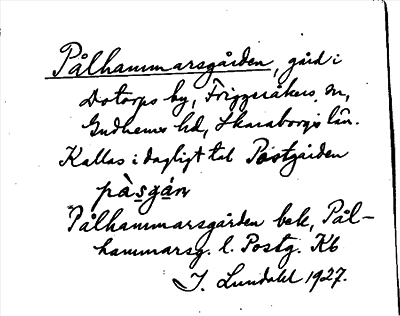 Pålhammarsgården, gård i
Dotorps by, Friggeråkers sn,
Gudhems hd, Skaraborgs län.
Kallas i dagligt tal Postgården
pàsgán
Pålhammarsgården bek, Pål-
hammarsg. l. Postg. Kb
J. Lundahl 1927.